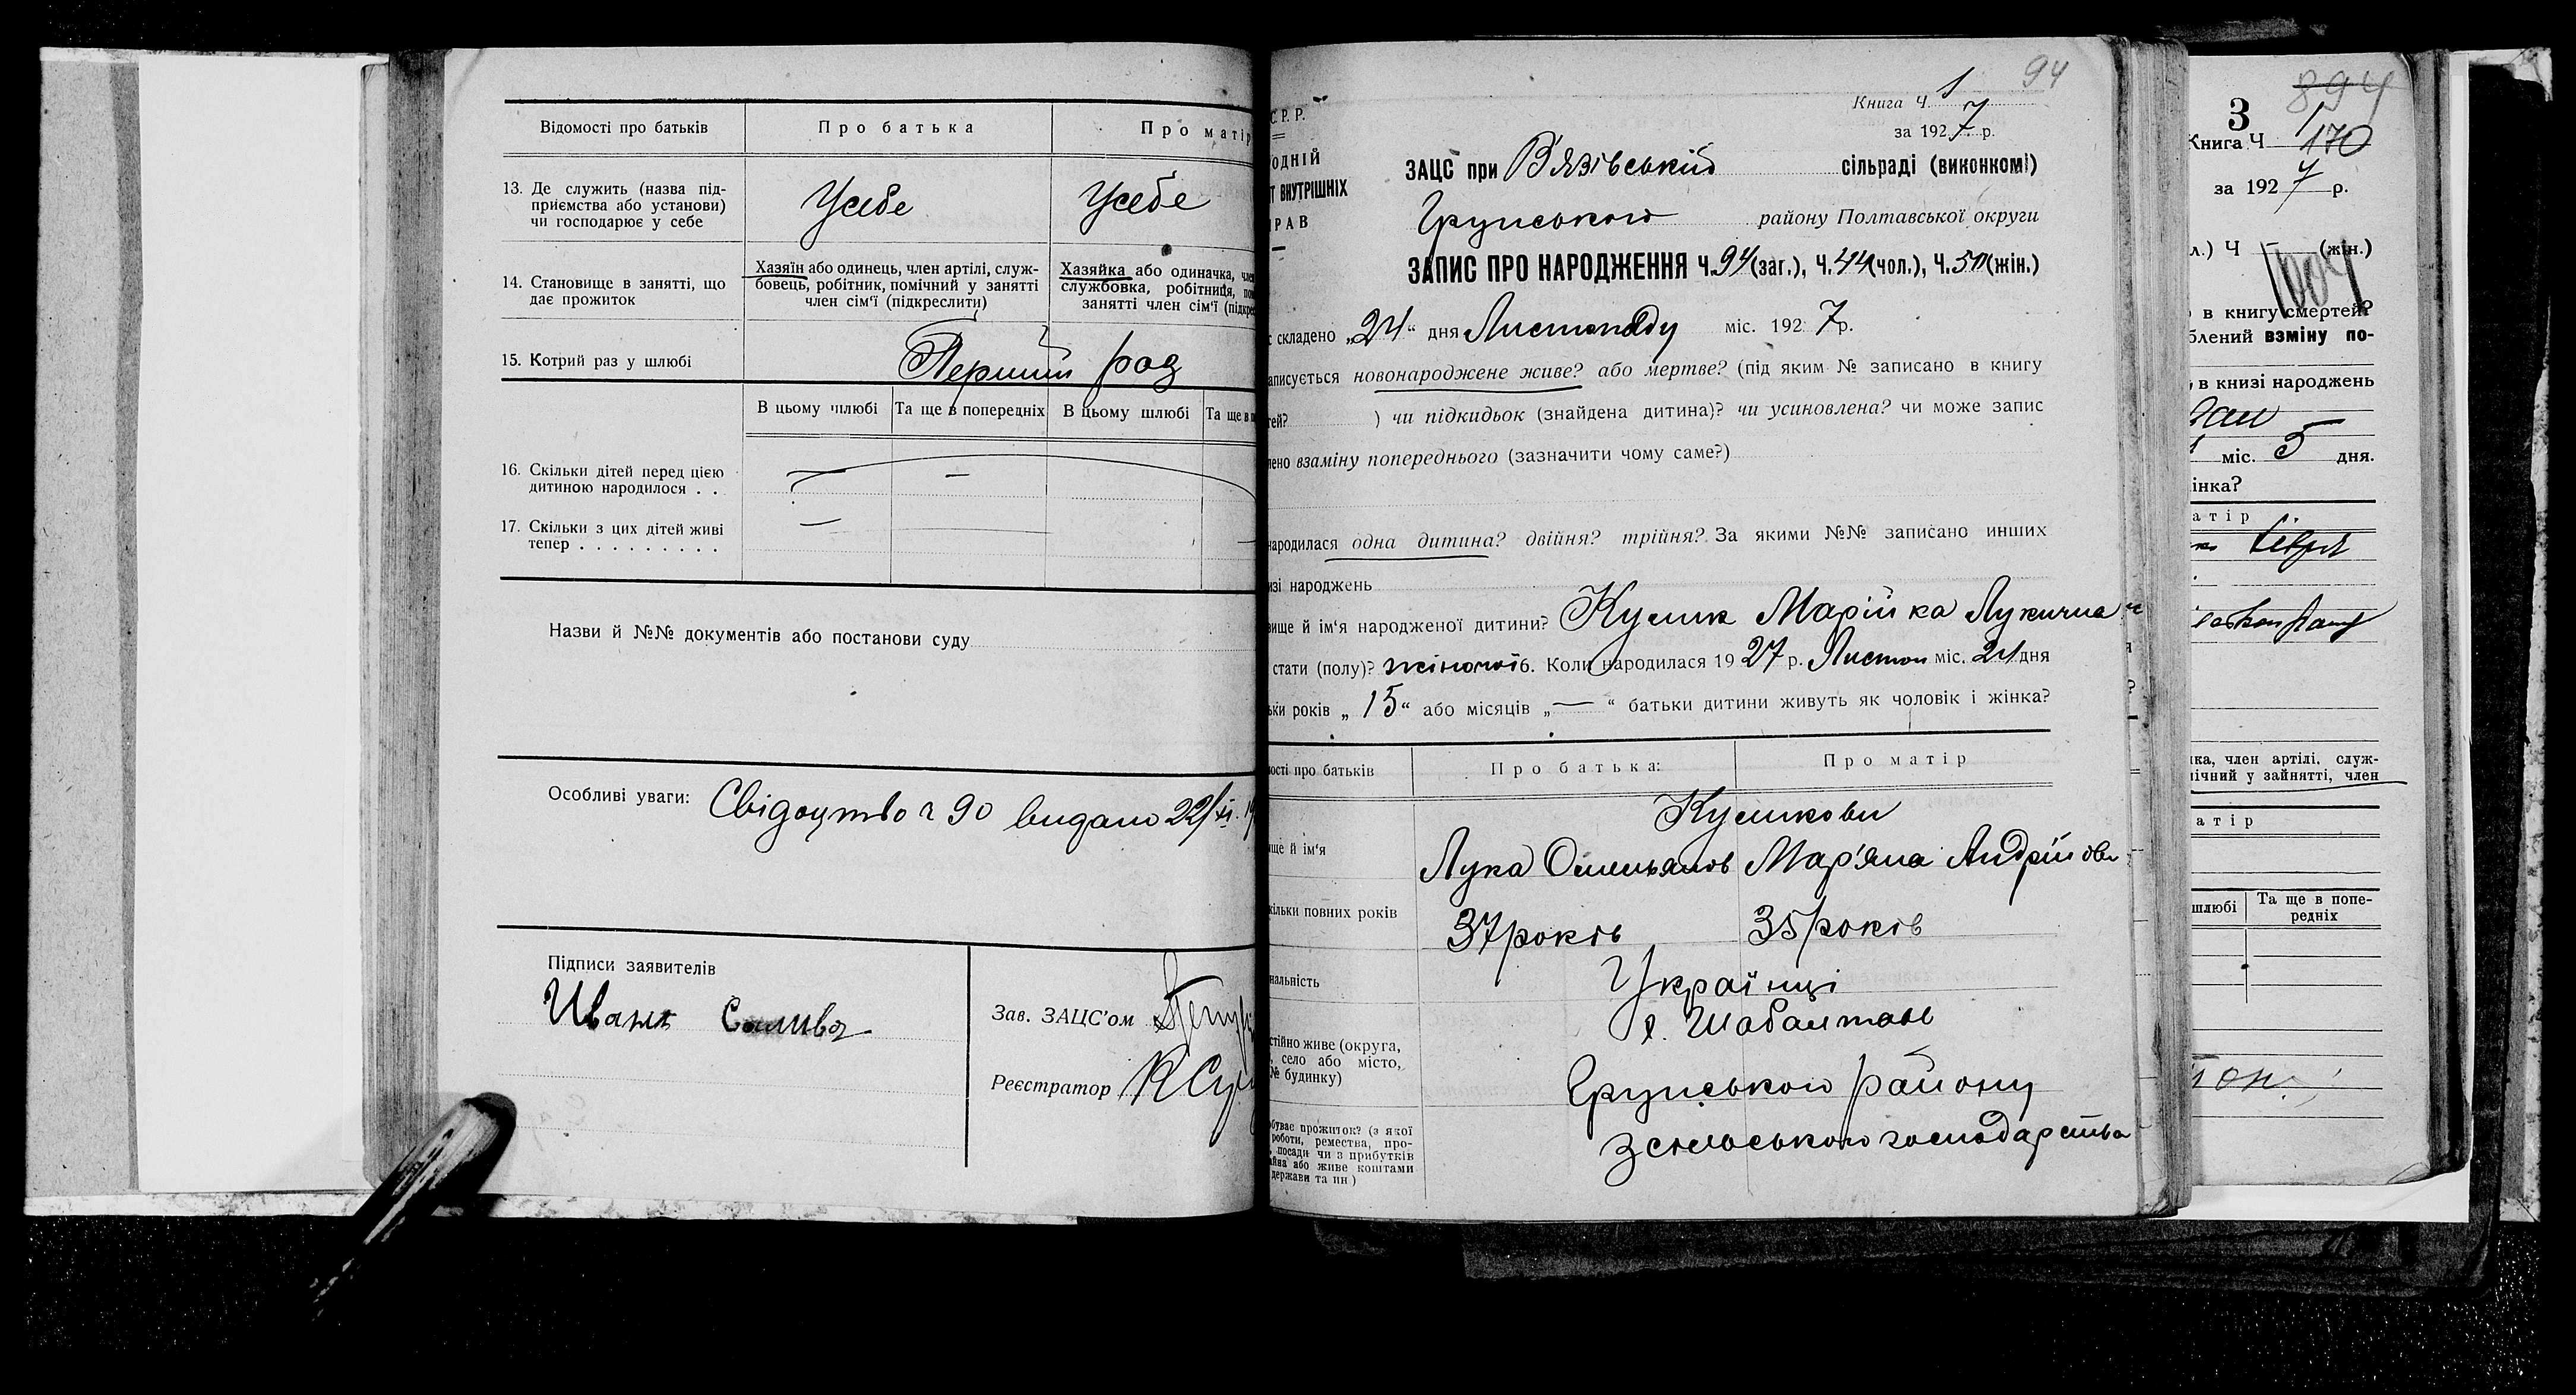 Відомості про батьків
Про батька
Про матір
13. Де служить (назва під-
приємства або установи)
чи господарює у себе
Усебе
Усебе
14. Становище в занятті, що
дає прожиток
Хазяїн або одинець, член артілі, служ-
бовець, робітник, помічний у занятті
член сім'ї (підкреслити)
Хазяйка або одиначка, член
службовка, робітниця, пом
занятті член сім'ї (підкре
15. Котрий раз у шлюбі
Перший раз
В цьому шлюбі
Та ще в попередніх
В цьому шлюбі
Та ще в п
16. Скільки дітей перед цією
дитиною народилося . .
—
—
17. Скільки з цих дітей живі
тепер . . . . . . . . .
—
Назви й №№ документів або постанови суду
Особливі уваги: Свідоцтво ч 90 видано 22/XI. 19
Підписи заявителів
Иванъ
Зав. ЗАЦС'ом
Реєстратор
94
С.Р.Р.
Книга Ч. 1
за 1927 р.
ОДНІЙ
Т ВНУТРІШНІХ
РАВ
ЗАЦС при В'язівській сільраді (виконкомі)
Грунського району Полтавської округи
ЗАПИС ПРО НАРОДЖЕННЯ Ч. 94 (заг.), Ч. 44 (чол.), Ч. 50 (жін.)
складено „21“ дня Листопаду міс. 1927 р.
аписується новонароджене живе? або мертве? (під яким № записано в книгу
тей? ) чи підкидьок (знайдена дитина)? чи усиновлена? чи може запис
лено взаміну попереднього (зазначити чому саме?)
народилася одна дитина? двійня? трійня? За якими №№ записано инших
изі народжень
вище й ім'я народженої дитини? Кулик Марійка Лукична
стати (полу)? жіночої 6. Коли народилася 1927 р. Листоп міс. 21 дня
ьки років „15“ або місяців „—“ батьки дитини живуть як чоловік і жінка?
мості про батьків
Про батька:
Про матір
Куликови
ище й ім'я
Лука Омельянов
Мар'яна Андрійовн
кільки повних років
37 років
35 років
нальність
Українці
стійно живе (округа,
, село або місто,
№ будинку)
х. Шабалтаїв
Грунського району
обуває прожиток? (з якої
роботи, ремества, про-
, посади чи з прибутків
айна або живе коштами
держави та ин)
з сільського господарства
894
3
Книга Ч 1
170
за 1927 р.
л.) Ч — (жін.)
в книгу смертей?
блений взміну по-
, в книзі народжень
міс. 5 дня.
інка?
атір
ика, член артілі, служ-
мічний у зайнятті, член
атір
шлюбі
Та ще в попе-
редніх